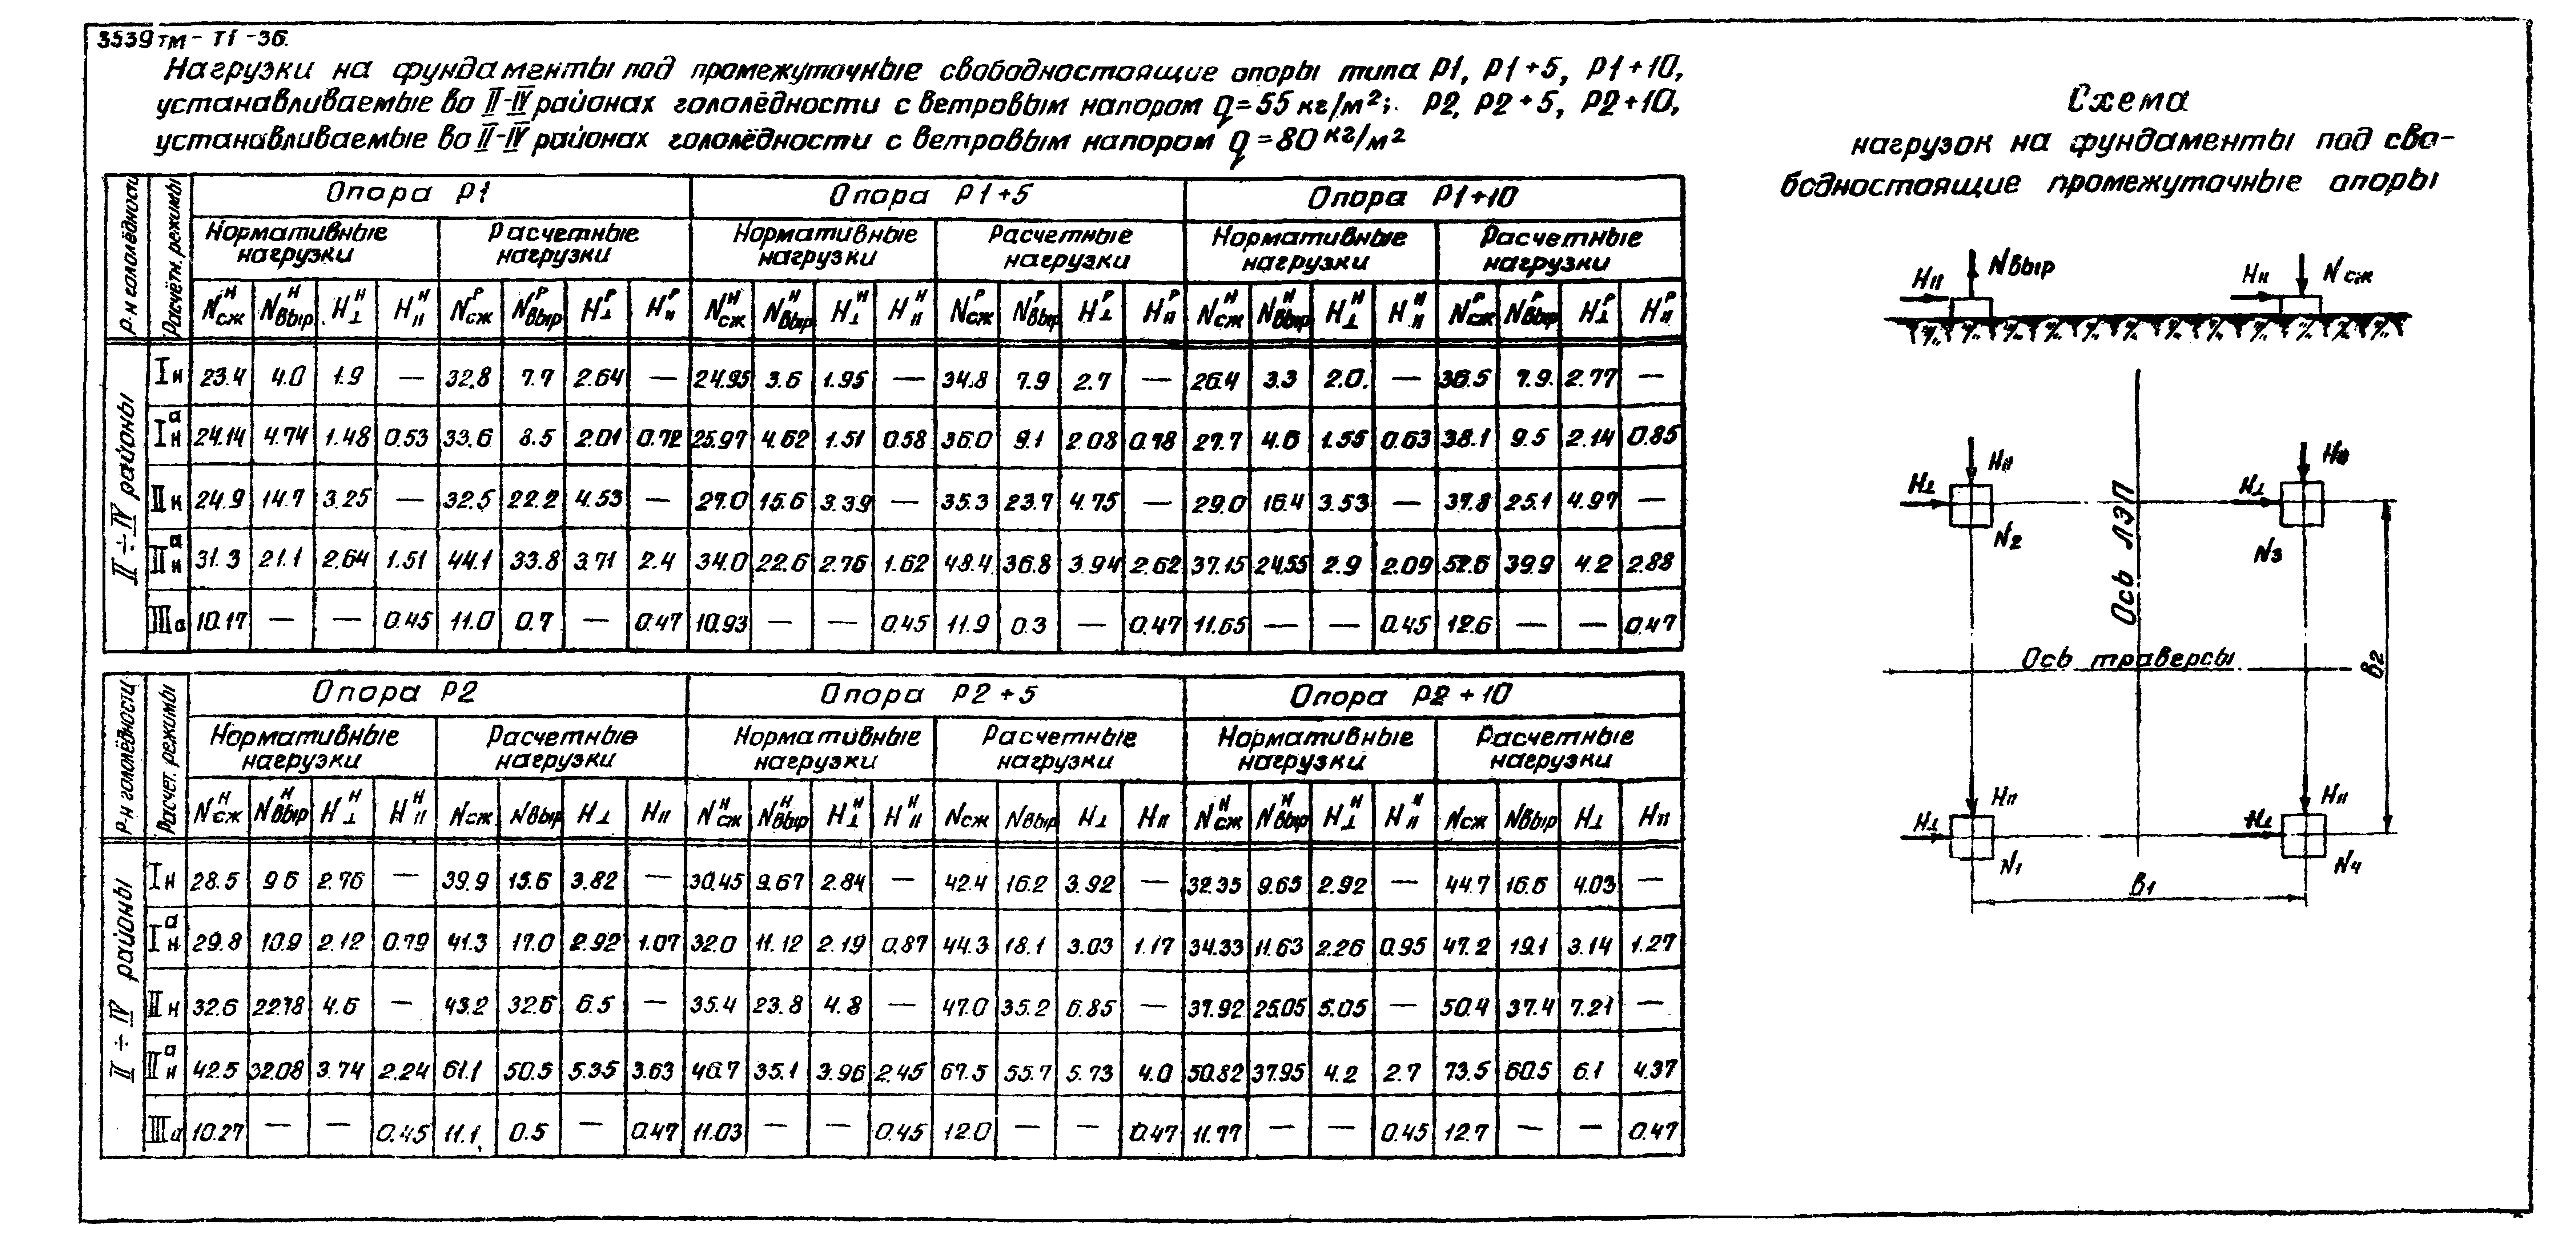 3539тм-Т1-36.
Нагрузки на фундаменты под промежуточные свободностоящие опоры типа Р1, Р1+5, Р1+10,
устанавливаемые во II-IV районах гололёдности с ветровым напором q=55 кг/м²; Р2, Р2+5, Р2+10,
устанавливаемые во II-IV районах гололёдности с ветровым напором q=80 кг/м²
Р-н гололёдности Расчётн. режимы Опора Р1 Опора Р1+5 Опора Р1+10
Нормативные нагрузки Расчетные нагрузки Нормативные нагрузки Расчетные нагрузки Нормативные нагрузки Расчетные нагрузки
Nсж^Н Nвыр^Н H⊥^Н HII^Н Nсж^Р Nвыр^Р H⊥^Р HII^Р Nсж^Н Nвыр^Н H⊥^Н HII^Н Nсж^Р Nвыр^Р H⊥^Р HII^Р Nсж^Н Nвыр^Н H⊥^Н HII^Н Nсж^Р Nвыр^Р H⊥^Р HII^Р
II÷IV районы
Iн 23.4 4.0 1.9 — 32.8 7.7 2.64 — 24.95 3.6 1.95 — 34.8 7.9 2.7 — 26.4 3.3 2.0. — 36.5 7.9. 2.77 —
Iн^а 24.14 4.74 1.48 0.53 33.6 8.5 2.01 0.72 25.97 4.62 1.51 0.58 36.0 9.1 2.08 0.78 27.7 4.6 1.55 0.63 38.1 9.5 2.14 0.85
IIн 24.9 14.7 3.25 — 32.5 22.2 4.53 — 27.0 15.6 3.39 — 35.3 23.7 4.75 — 29.0 16.4 3.53 — 37.8 25.1 4.97 —
IIн^а 31.3 21.1 2.64 1.51 44.1 33.8 3.71 2.4 34.0 22.6 2.76 1.62 48.4 36.8 3.94 2.62 37.15 24.55 2.9 2.09 52.6 39.9 4.2 2.88
IIIа 10.17 — — 0.45 11.0 0.7 — 0.47 10.93 — — 0.45 11.9 0.3 — 0.47 11.65 — — 0.45 12.6 — — 0.47
Р-н гололёдности Расчет. режимы Опора Р2 Опора Р2+5 Опора Р2+10
Нормативные нагрузки Расчетные нагрузки Нормативные нагрузки Расчетные нагрузки Нормативные нагрузки Расчетные нагрузки
Nсж^Н Nвыр^Н H⊥^Н HII^Н Nсж Nвыр H⊥ HII Nсж^Н Nвыр^Н H⊥^Н HII^Н Nсж Nвыр H⊥ HII Nсж^Н Nвыр^Н H⊥^Н HII^Н Nсж Nвыр H⊥ HII
II÷IV районы
Iн 28.5 9.6 2.76 — 39.9 15.6 3.82 — 30.45 9.67 2.84 — 42.4 16.2 3.92 — 32.35 9.65 2.92 — 44.7 16.6 4.03 —
Iн^а 29.8 10.9 2.12 0.79 41.3 17.0 2.92 1.07 32.0 11.12 2.19 0.87 44.3 18.1 3.03 1.17 34.33 11.63 2.26 0.95 47.2 19.1 3.14 1.27
IIн 32.6 22.18 4.6 — 43.2 32.6 6.5 — 35.4 23.8 4.8 — 47.0 35.2 6.85 — 37.92 25.05 5.05 — 50.4 37.4 7.21 —
IIн^а 42.5 32.08 3.74 2.24 61.1 50.5 5.35 3.63 46.7 35.1 3.96 2.45 67.5 55.7 5.73 4.0 50.82 37.95 4.2 2.7 73.5 60.5 6.1 4.37
IIIа 10.27 — — 0.45 11.1. 0.5 — 0.47 11.03 — — 0.45 12.0 — — 0.47 11.77 — — 0.45 12.7 — — 0.47
Схема
нагрузок на фундаменты под сво-
бодностоящие промежуточные опоры
HII Nвыр HII Nсж
HII HII
H⊥ H⊥
N2 N3
Ось ЛЭП
Ось траверсы
В2
HII HII
H⊥ H⊥
N1 N4
В1